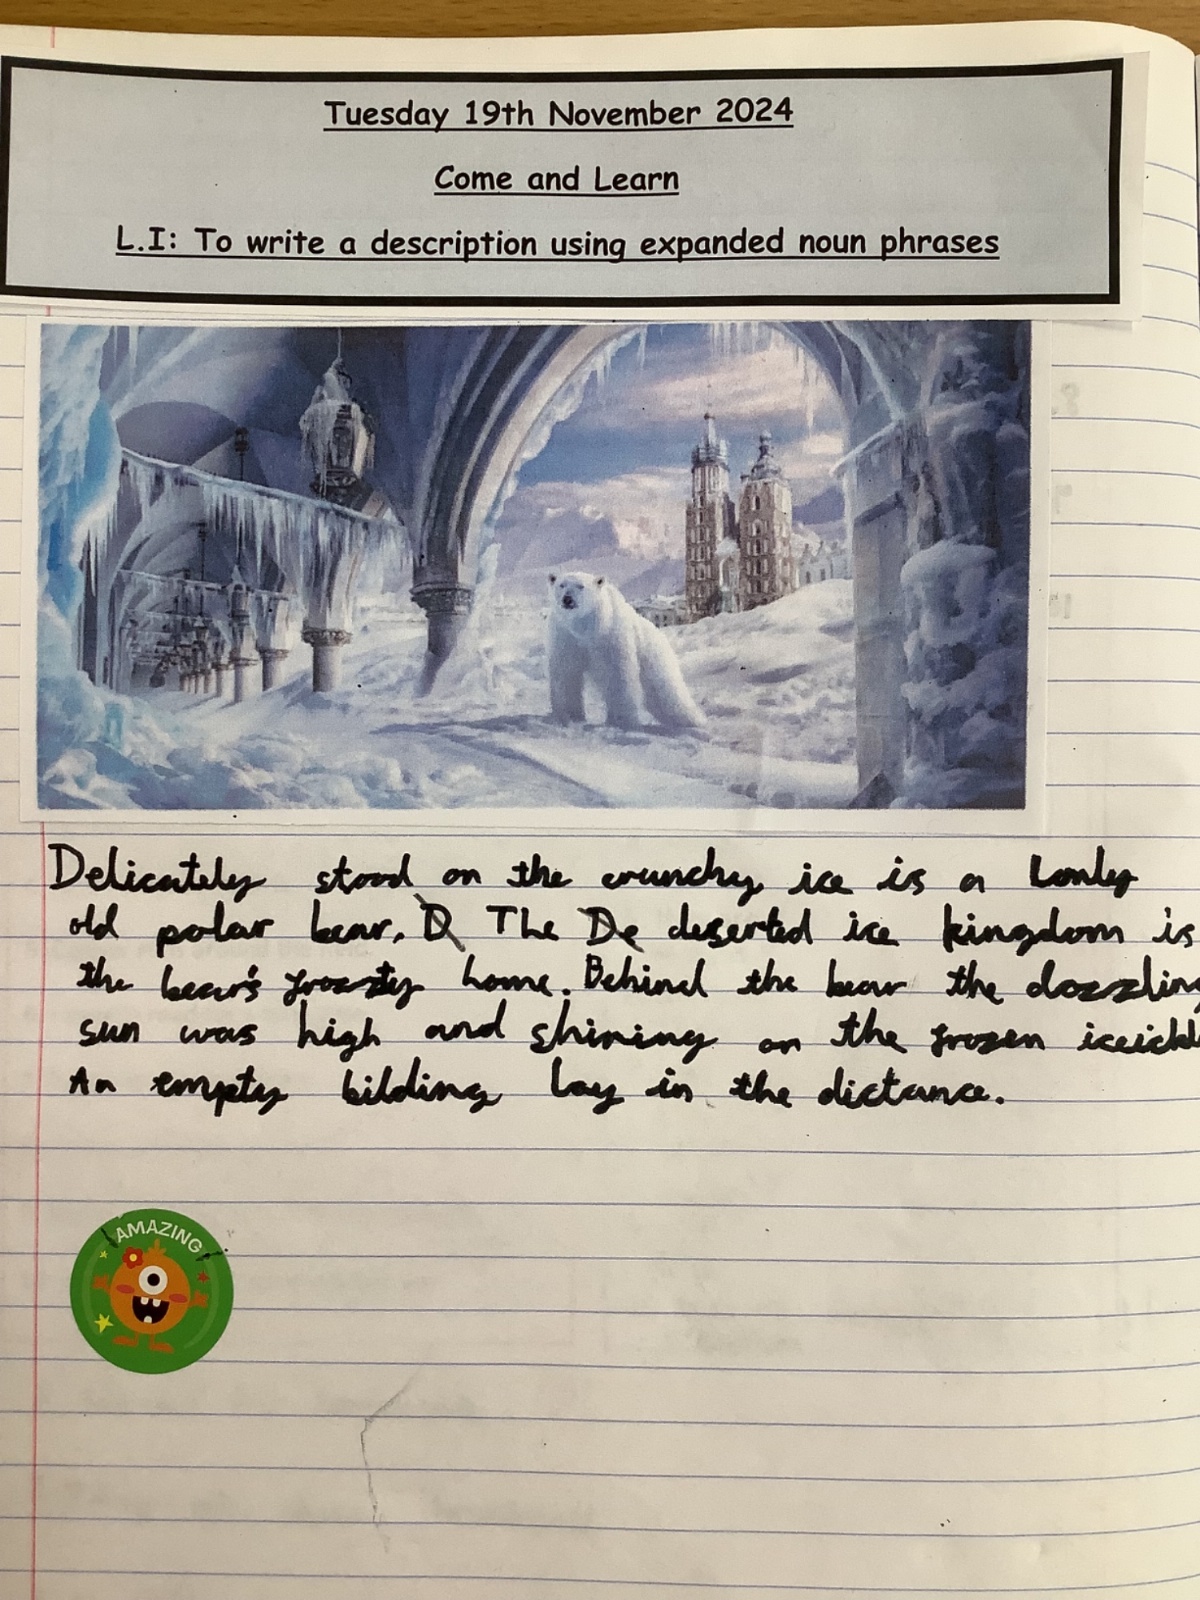 Tuesday 19th November 2024
Come and Learn
L.I: To write a description using expanded noun phrases
Delicately stood on the crunchy ice is a Lonly
old polar bear. D The De deserted ice kingdom is
the bear's frozty home. Behind the bear the dazzling
sun was high and shining on the frozen
An empty bilding lay in the dictance.
AMAZING